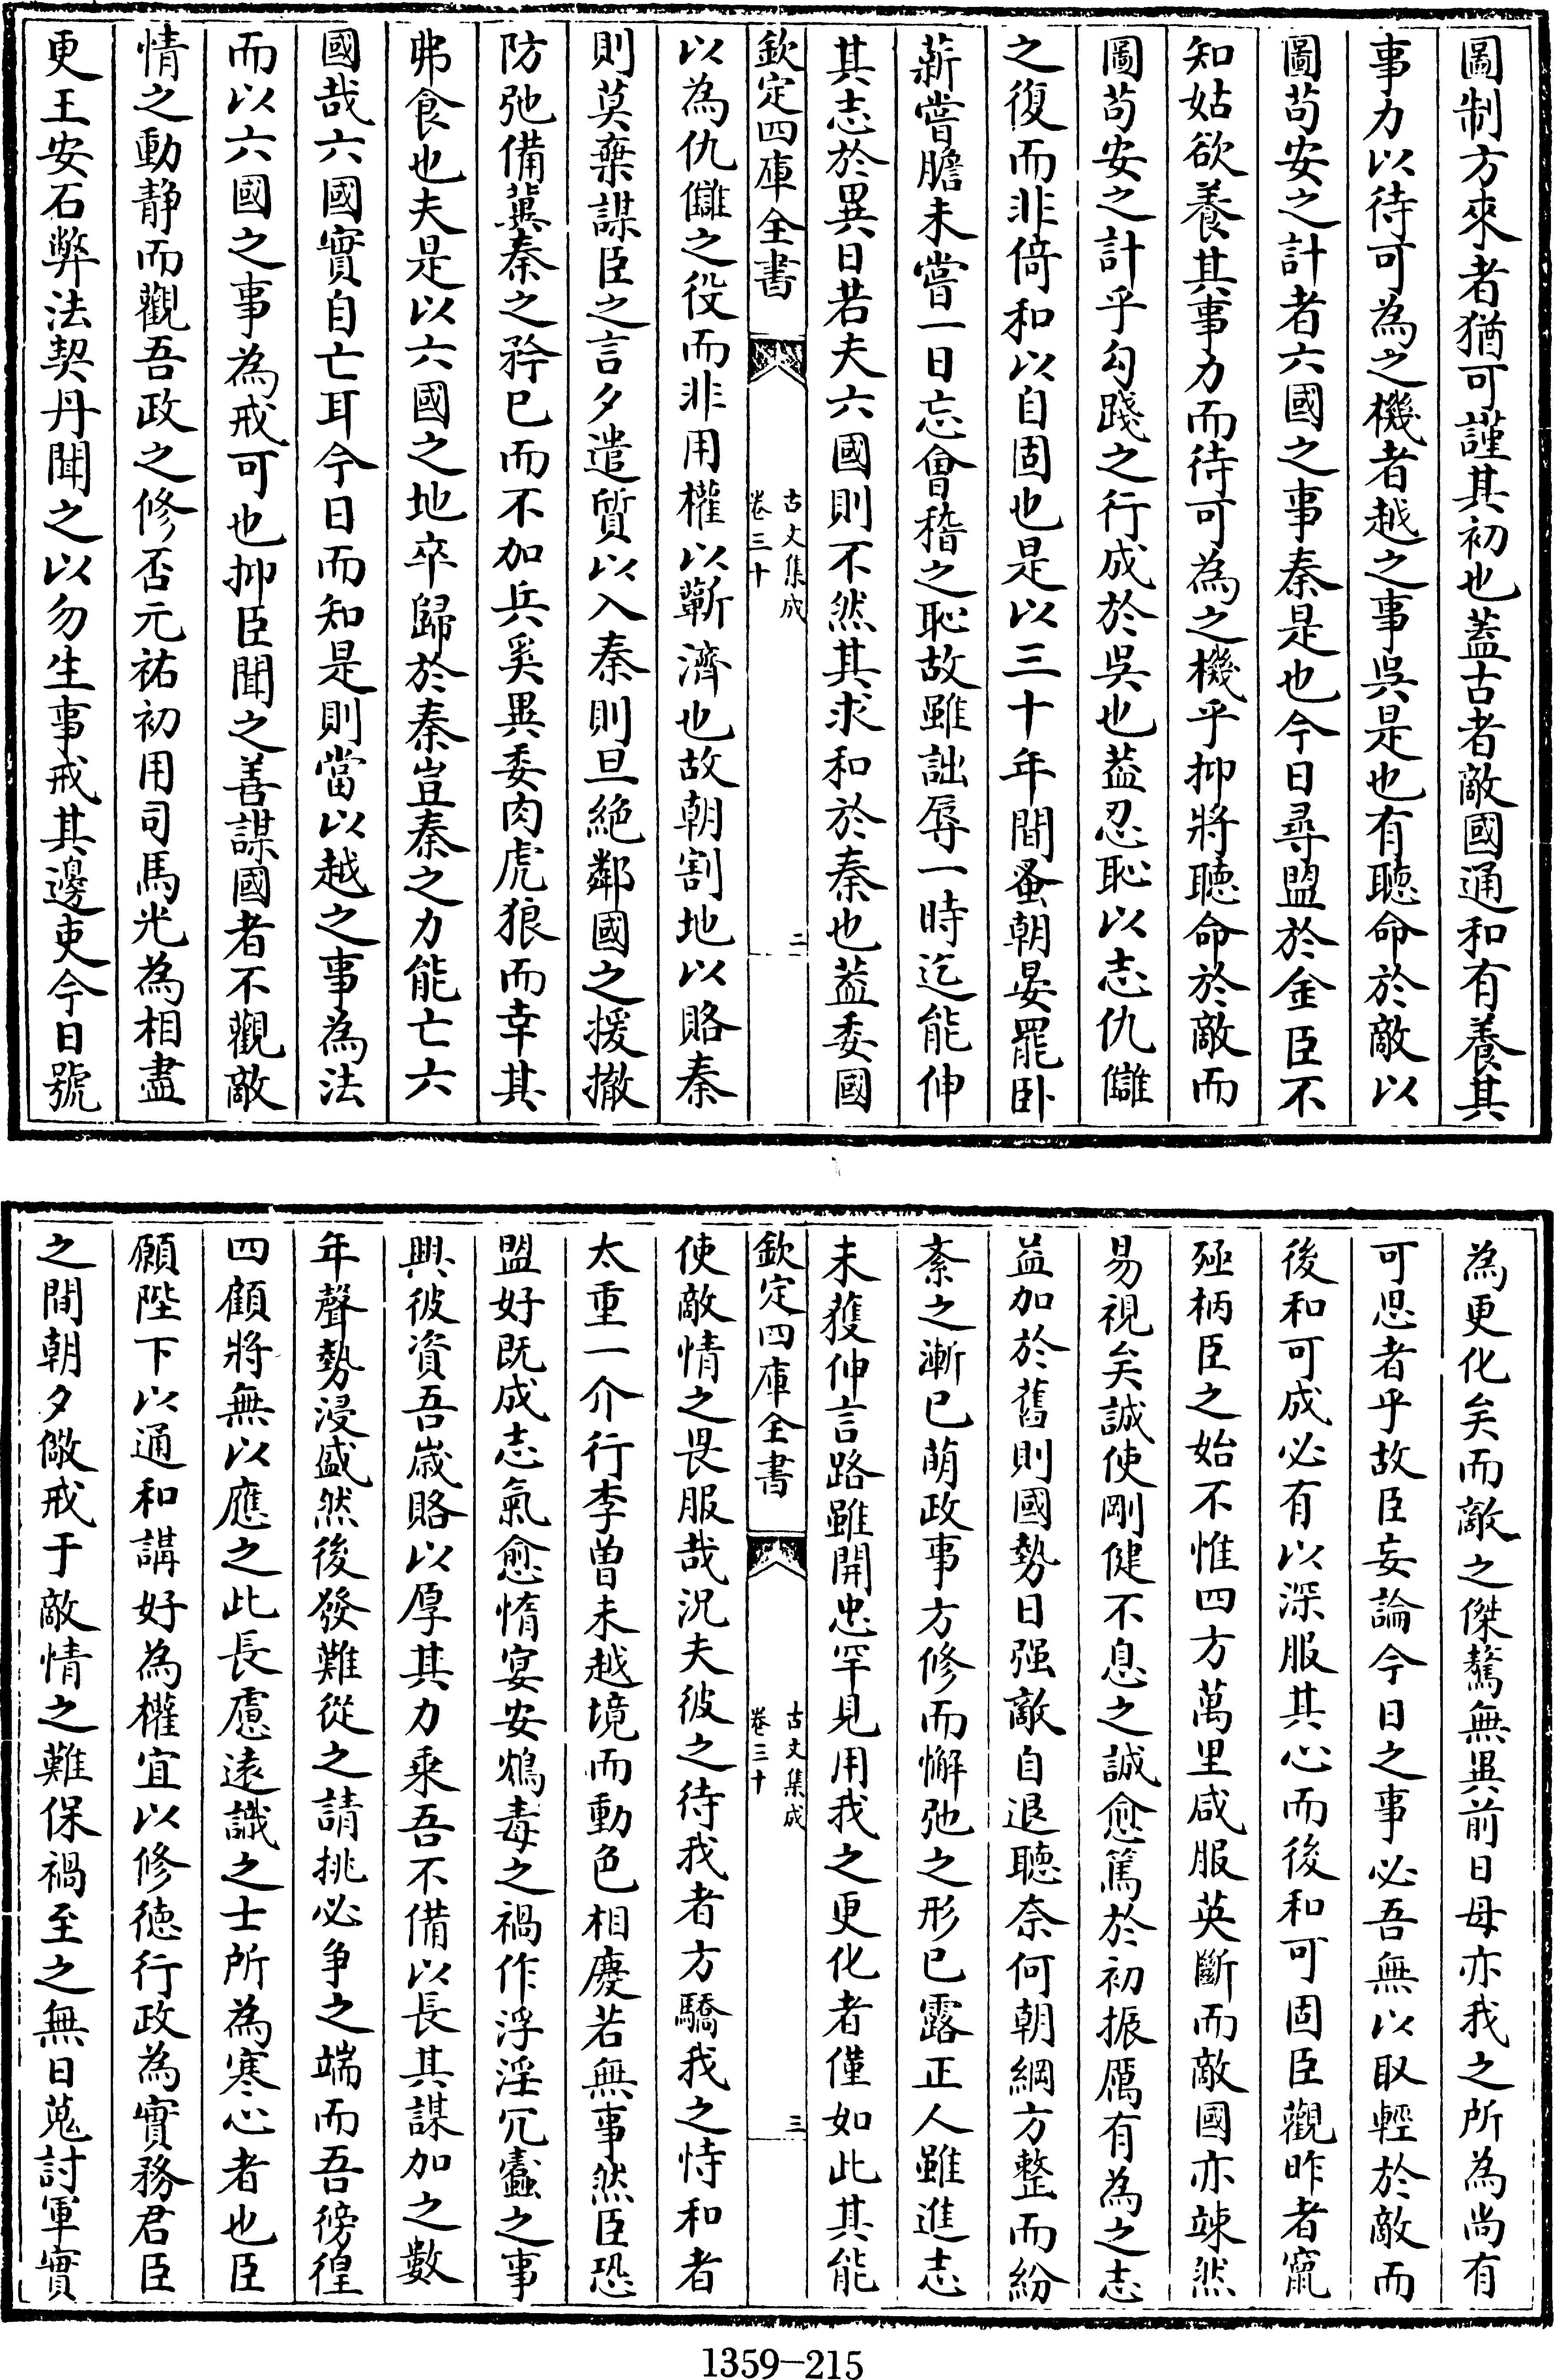 圖制方來者猶可謹其初也蓋古者敵國通和有養其
事力以待可為之機者越之事吳是也有聽命於敵以
圖苟安之計者六國之事秦是也今日尋盟於金臣不
知姑欲養其事力而待可為之機乎抑將聽命於敵而
圖苟安之計乎勾踐之行成於吳也葢忍恥以志仇讎
之復而非倚和以自固也是以三十年間蚤朝晏罷卧
薪嘗膽未嘗一日忘會稽之恥故雖詘辱一時迄能伸
其志於異日若夫六國則不然其求和於秦也葢委國
欽定四庫全書
古文集成
卷三十
二
以為仇讎之役而非用權以蘄濟也故朝割地以賂秦
則莫棄謀臣之言夕遣質以入秦則旦絶鄰國之援撤
防弛備冀秦之矜已而不加兵奚異委肉虎狼而幸其
弗食也夫是以六國之地卒歸於秦豈秦之力能亡六
國哉六國實自亡耳今日而知是則當以越之事為法
而以六國之事為戒可也抑臣聞之善謀國者不觀敵
情之動靜而觀吾政之修否元祐初用司馬光為相盡
更王安石弊法契丹聞之以勿生事戒其邊吏今日號
為更化矣而敵之傑驁無異前日毋亦我之所為尚有
可思者乎故臣妄論今日之事必吾無以取輕於敵而
後和可成必有以深服其心而後和可固臣觀昨者竄
殛柄臣之始不惟四方萬里咸服英斷而敵國亦竦然
易視矣誠使剛健不息之誠愈篤於初振厲有為之志
益加於舊則國勢日强敵自退聽奈何朝綱方整而紛
紊之漸已萌政事方修而懈弛之形已露正人雖進志
未獲伸言路雖開忠罕見用我之更化者僅如此其能
欽定四庫全書
古文集成
卷三十
三
使敵情之畏服哉況夫彼之待我者方驕我之恃和者
太重一介行李曾未越境而動色相慶若無事然臣恐
盟好既成志氣愈惰宴安鴆毒之禍作浮淫冗蠹之事
興彼資吾歲賂以厚其力乘吾不備以長其謀加之數
年聲勢浸盛然後發難從之請挑必争之端而吾徬徨
四顧將無以應之此長慮遠識之士所為寒心者也臣
願陛下以通和講好為權宜以修德行政為實務君臣
之間朝夕儆戒于敵情之難保禍至之無日蒐討軍實
1359-215